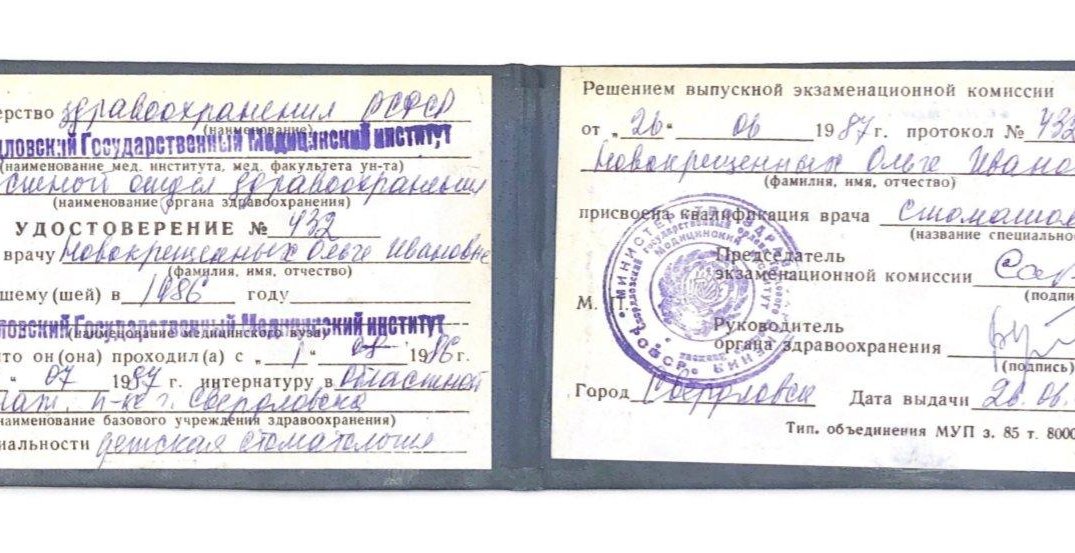 ерство здравоохранения РСФСР
(наименование)
дловский Государственный Медицинский институт
(наименование мед. института, мед. факультета ун-та)
стной отдел здравоохранения
(наименование органа здравоохранения)
УДОСТОВЕРЕНИЕ № 432
врачу Новокрещенных Ольге Ивановне
(фамилия, имя, отчество)
шему (шей) в 1986 году
ловский Государственный Медицинский институт
(наименование медицинского вуза)
то он (она) проходил (а) с „ 1 " 08 1986 г.
" 07 1987 г. интернатуру в Областной
п-ке г. Свердловска
наименование базового учреждения здравоохранения)
иальности детская стоматология
Решением выпускной экзаменационной комиссии
от „ 26 " 06 1987 г. протокол № 432
Новокрещенных Ольге Ивано
(фамилия, имя, отчество)
присвоена квалификация врача стоматол
(название специально
Председатель
экзаменационной комиссии
(подпи
М. П.
Руководитель
органа здравоохранения
(подпись)
Город Свердловск Дата выдачи 26.06.
Тип. объединения МУП з. 85 т. 8000
МИНИСТЕРСТВО ЗДРАВООХРАНЕНИЯ РСФСР